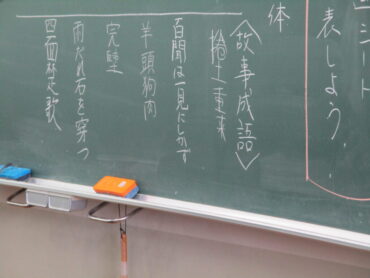 ミート
表しよう．
体
〈故事成語〉
捲土重来
百聞は一見にしかず
羊頭狗肉
完璧
雨だれ石を穿つ
四面楚歌